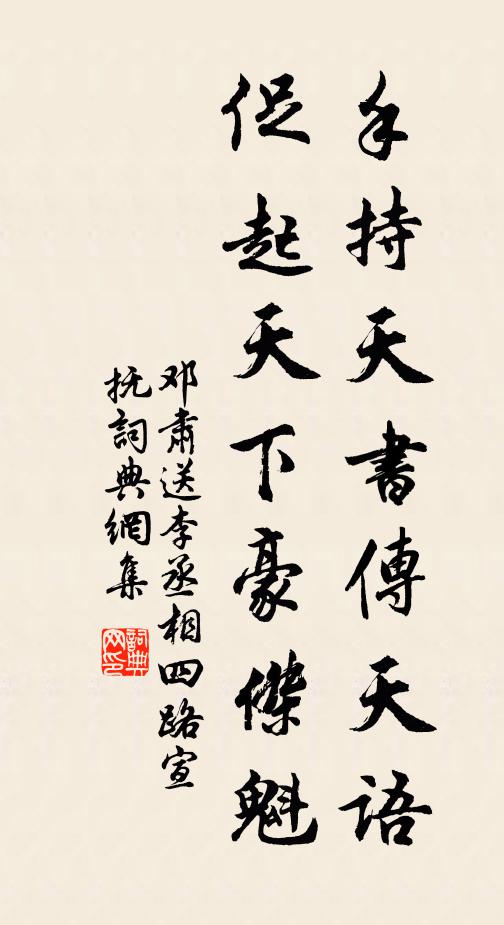 手持天書傳天語
促起天下豪傑魁
邓肅送李丞相四路宣
抚詞典網集
詞典网印